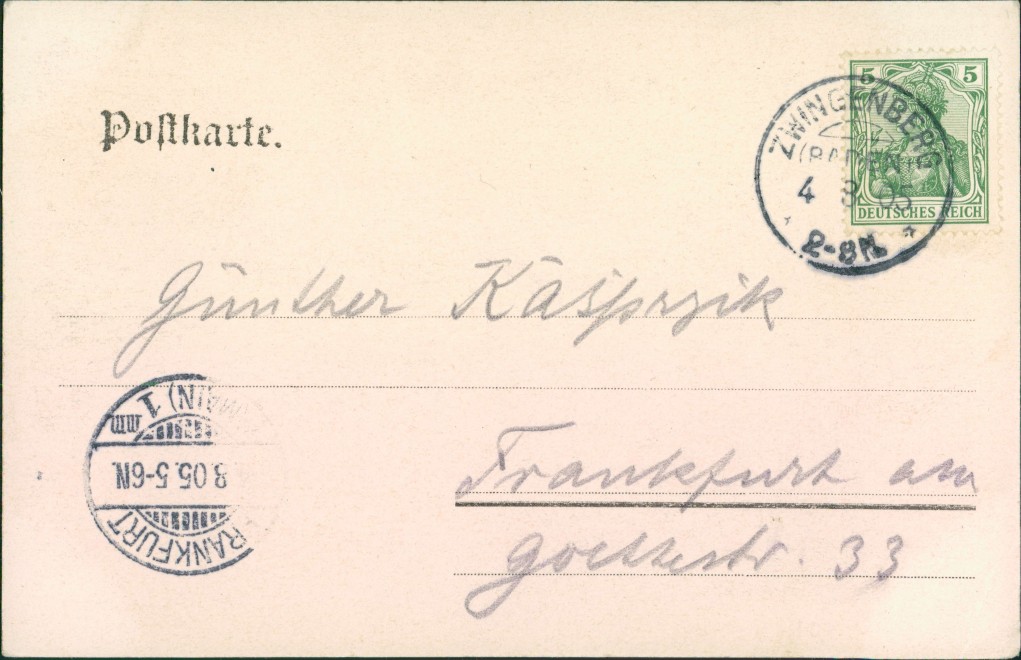 Postkarte.
5 5
DEUTSCHES REICH
ZWINGENBERG
(BADEN)
4 8 05
2-8N.
Günther Kasprzik
Frankfurt am
Goethestr. 33
FRANKFURT
8.05.5-6N.
(MAIN) 1